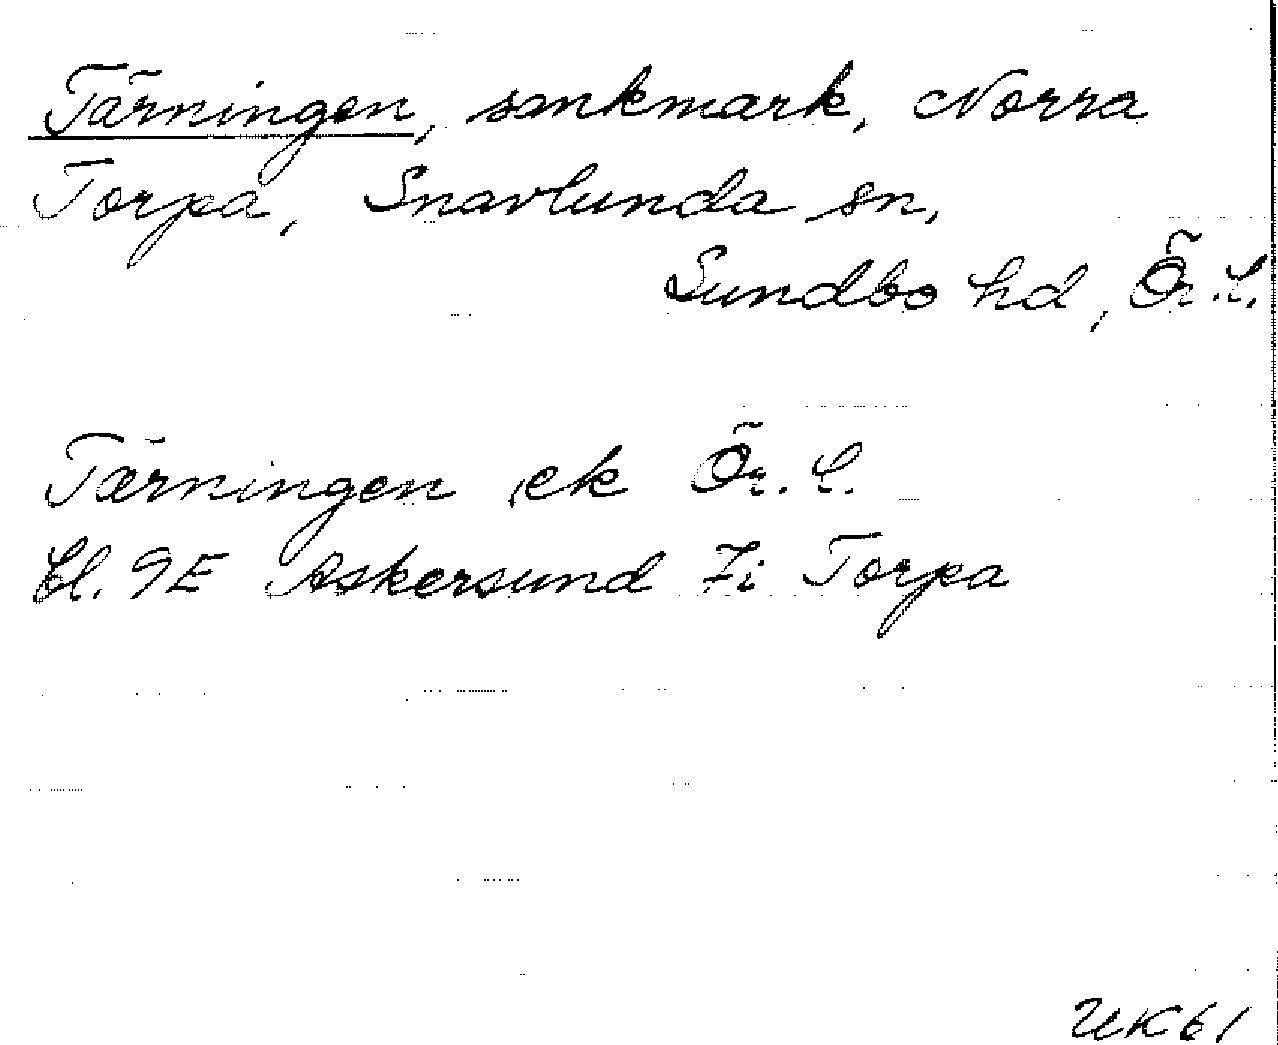 Tärningen, sankmark, Norra
Torpa, Snavlunda sn,
Sundbo hd, Ör. l.
Tärningen ek Ör. l.
bl. 9E Askersund 7i Torpa
UK61